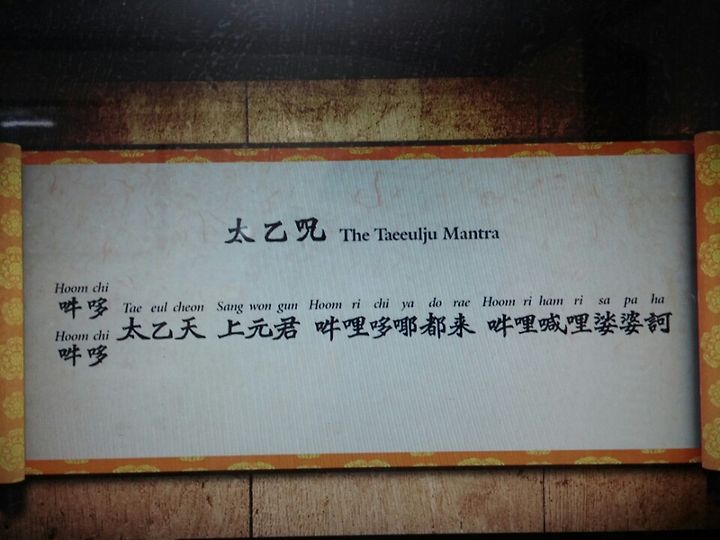 太乙咒 The Taeeulju Mantra
Hoom chi
吽哆
Hoom chi
吽哆
Tae eul cheon Sang won gun Hoom ri chi ya do rae Hoom ri ham ri sa pa ha
太乙天 上元君 吽哩哆㖿都来 吽哩喊哩娑婆訶